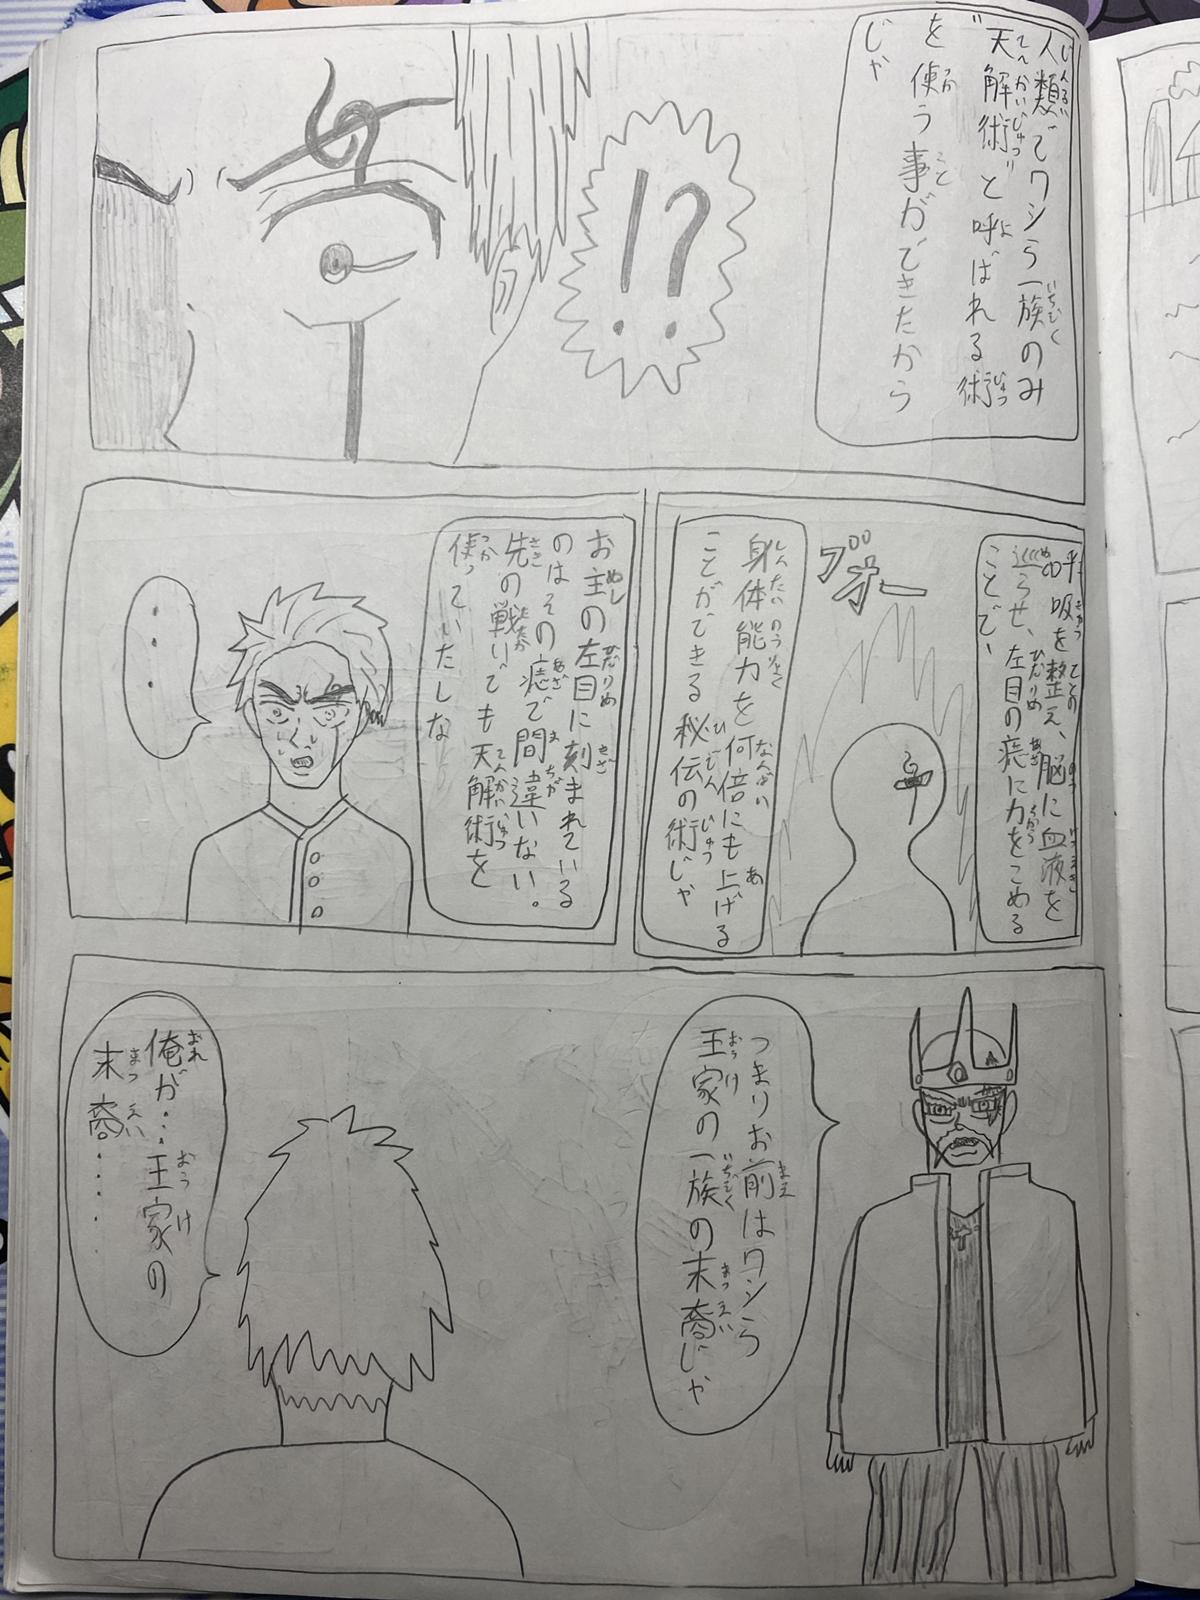 人類でワシら一族のみ
"天解術"と呼ばれる術
を使う事ができたから
じゃ
!?
呼吸を整え、脳に血液を
巡らせ、左目の痣に力をこめる
ことで、
ブオー
身体能力を何倍にも上げる
ことができる秘伝の術じゃ
お主の左目に刻まれている
のはその痣で間違いない。
先の戦いでも天解術を
使っていたしな
・・
つまりお前はワシら
王家の一族の末裔じゃ
俺が・・・王家の
末裔・・・・